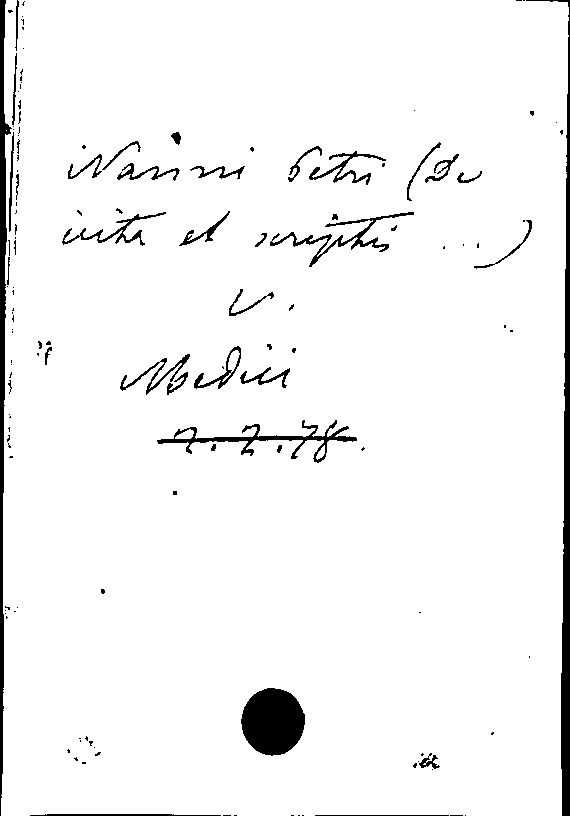 Nanni Petri (De
vita et scriptis ...)
v.
Medici
2.2.78.